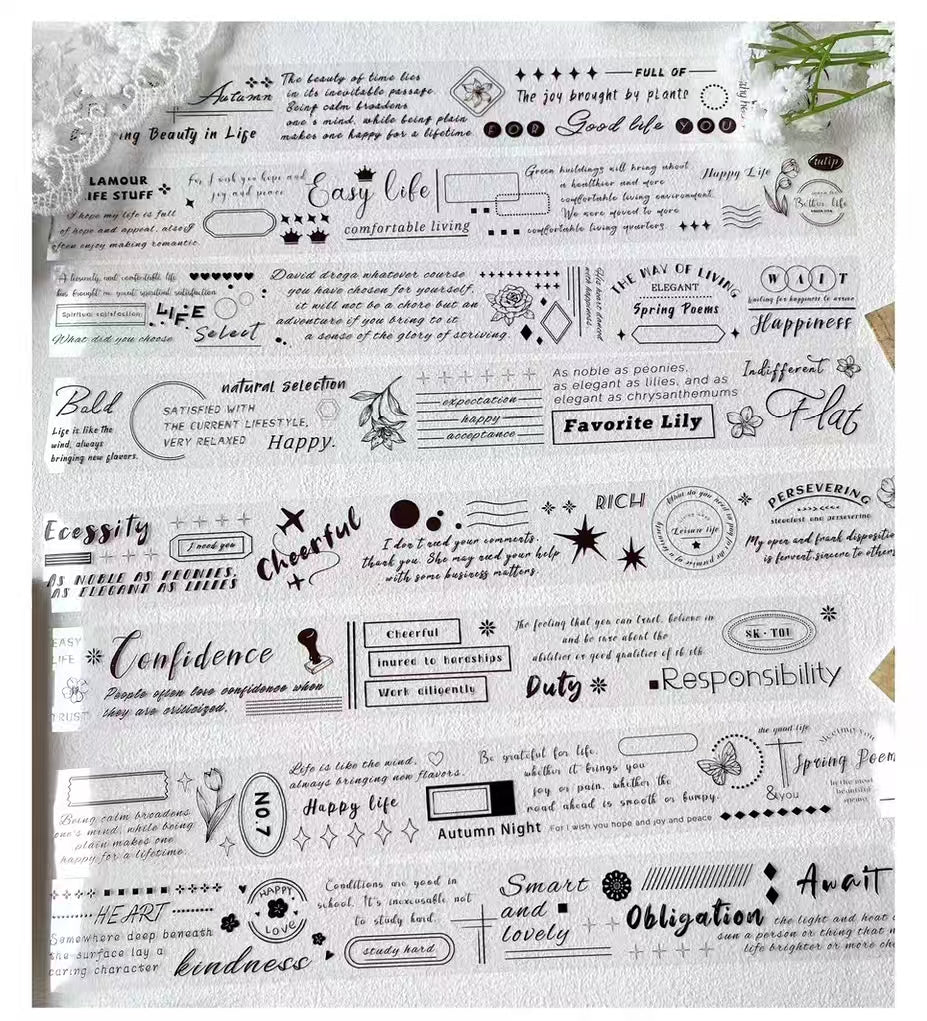 Autumn
ng Beauty in Life
The beauty of time lies
in its inevitable passage.
Being calm broadens
one's mind, while being plain
makes one happy for a lifetime.
FULL OF
The joy brought by plants
FOR Good life YOU
LAMOUR
IFE STUFF
I hope my life is full
of hope and appeal, also I
often enjoy making romantic.
For I wish you hope and
joy and peace
Easy life
comfortable living
Green buildings will bring about
a healthier and more
comfortable living environment.
We were moved to more
comfortable living quarters.
Happy Life
tulip
Better life
A leisurely and comfortable life
has brought me great spiritual satisfaction
Spiritual satisfaction
What did you choose
LIFE
Select
David droga whatever course
you have chosen for yourself,
it will not be a chore but an
adventure if you bring to it
a sense of the glory of striving.
His heart danced
with happiness
THE WAY OF LIVING
ELEGANT
Spring Poems
WAIT
waiting for happiness to arrive
Happiness
Bald
Life is like the
wind, always
bringing new flavors.
natural selection
SATISFIED WITH
THE CURRENT LIFESTYLE,
VERY RELAXED
Happy.
expectation
happy
acceptance
As noble as peonies,
as elegant as lilies, and as
elegant as chrysanthemums
Favorite Lily
Indifferent
Flat
Ecessity
I need you
AS NOBLE AS PEONIES,
AS ELEGANT AS LILIES
Cheerful
I don't need your comments,
thank you. She may need your help
with some business matters.
RICH
What do you need to pay
Leisure life
PERSEVERING
steadfast and persevering
My open and frank dispositio
is fervent.sincere to others
EASY
LIFE
TRUST
Confidence
People often lose confidence when
they are criticized.
Cheerful
inured to hardships
Work diligently
The feeling that you can trust, believe in
and be sure about the
abilities or good qualities of sb sth
Duty
SK·TOI
Responsibility
Being calm broadens
one's mind, while being
plain makes one
happy for a lifetime.
NO.7
Life is like the wind,
always bringing new flavors.
Happy life
Be grateful for life,
whether it brings you
joy or pain, whether the
road ahead is smooth or bumpy.
Autumn Night For I wish you hope and joy and peace
the good life
&you
Meeting you
Spring Poem
in the most
beautiful
HEART
Somewhere deep beneath
the surface lay a
caring character
HAPPY
LOVE
kindness
Conditions are good in
school. It's inexcusable not
to study hard.
study hard
Smart
and
lovely
Obligation
Await
the light and heat o
sun a person or thing that m
life brighter or more che